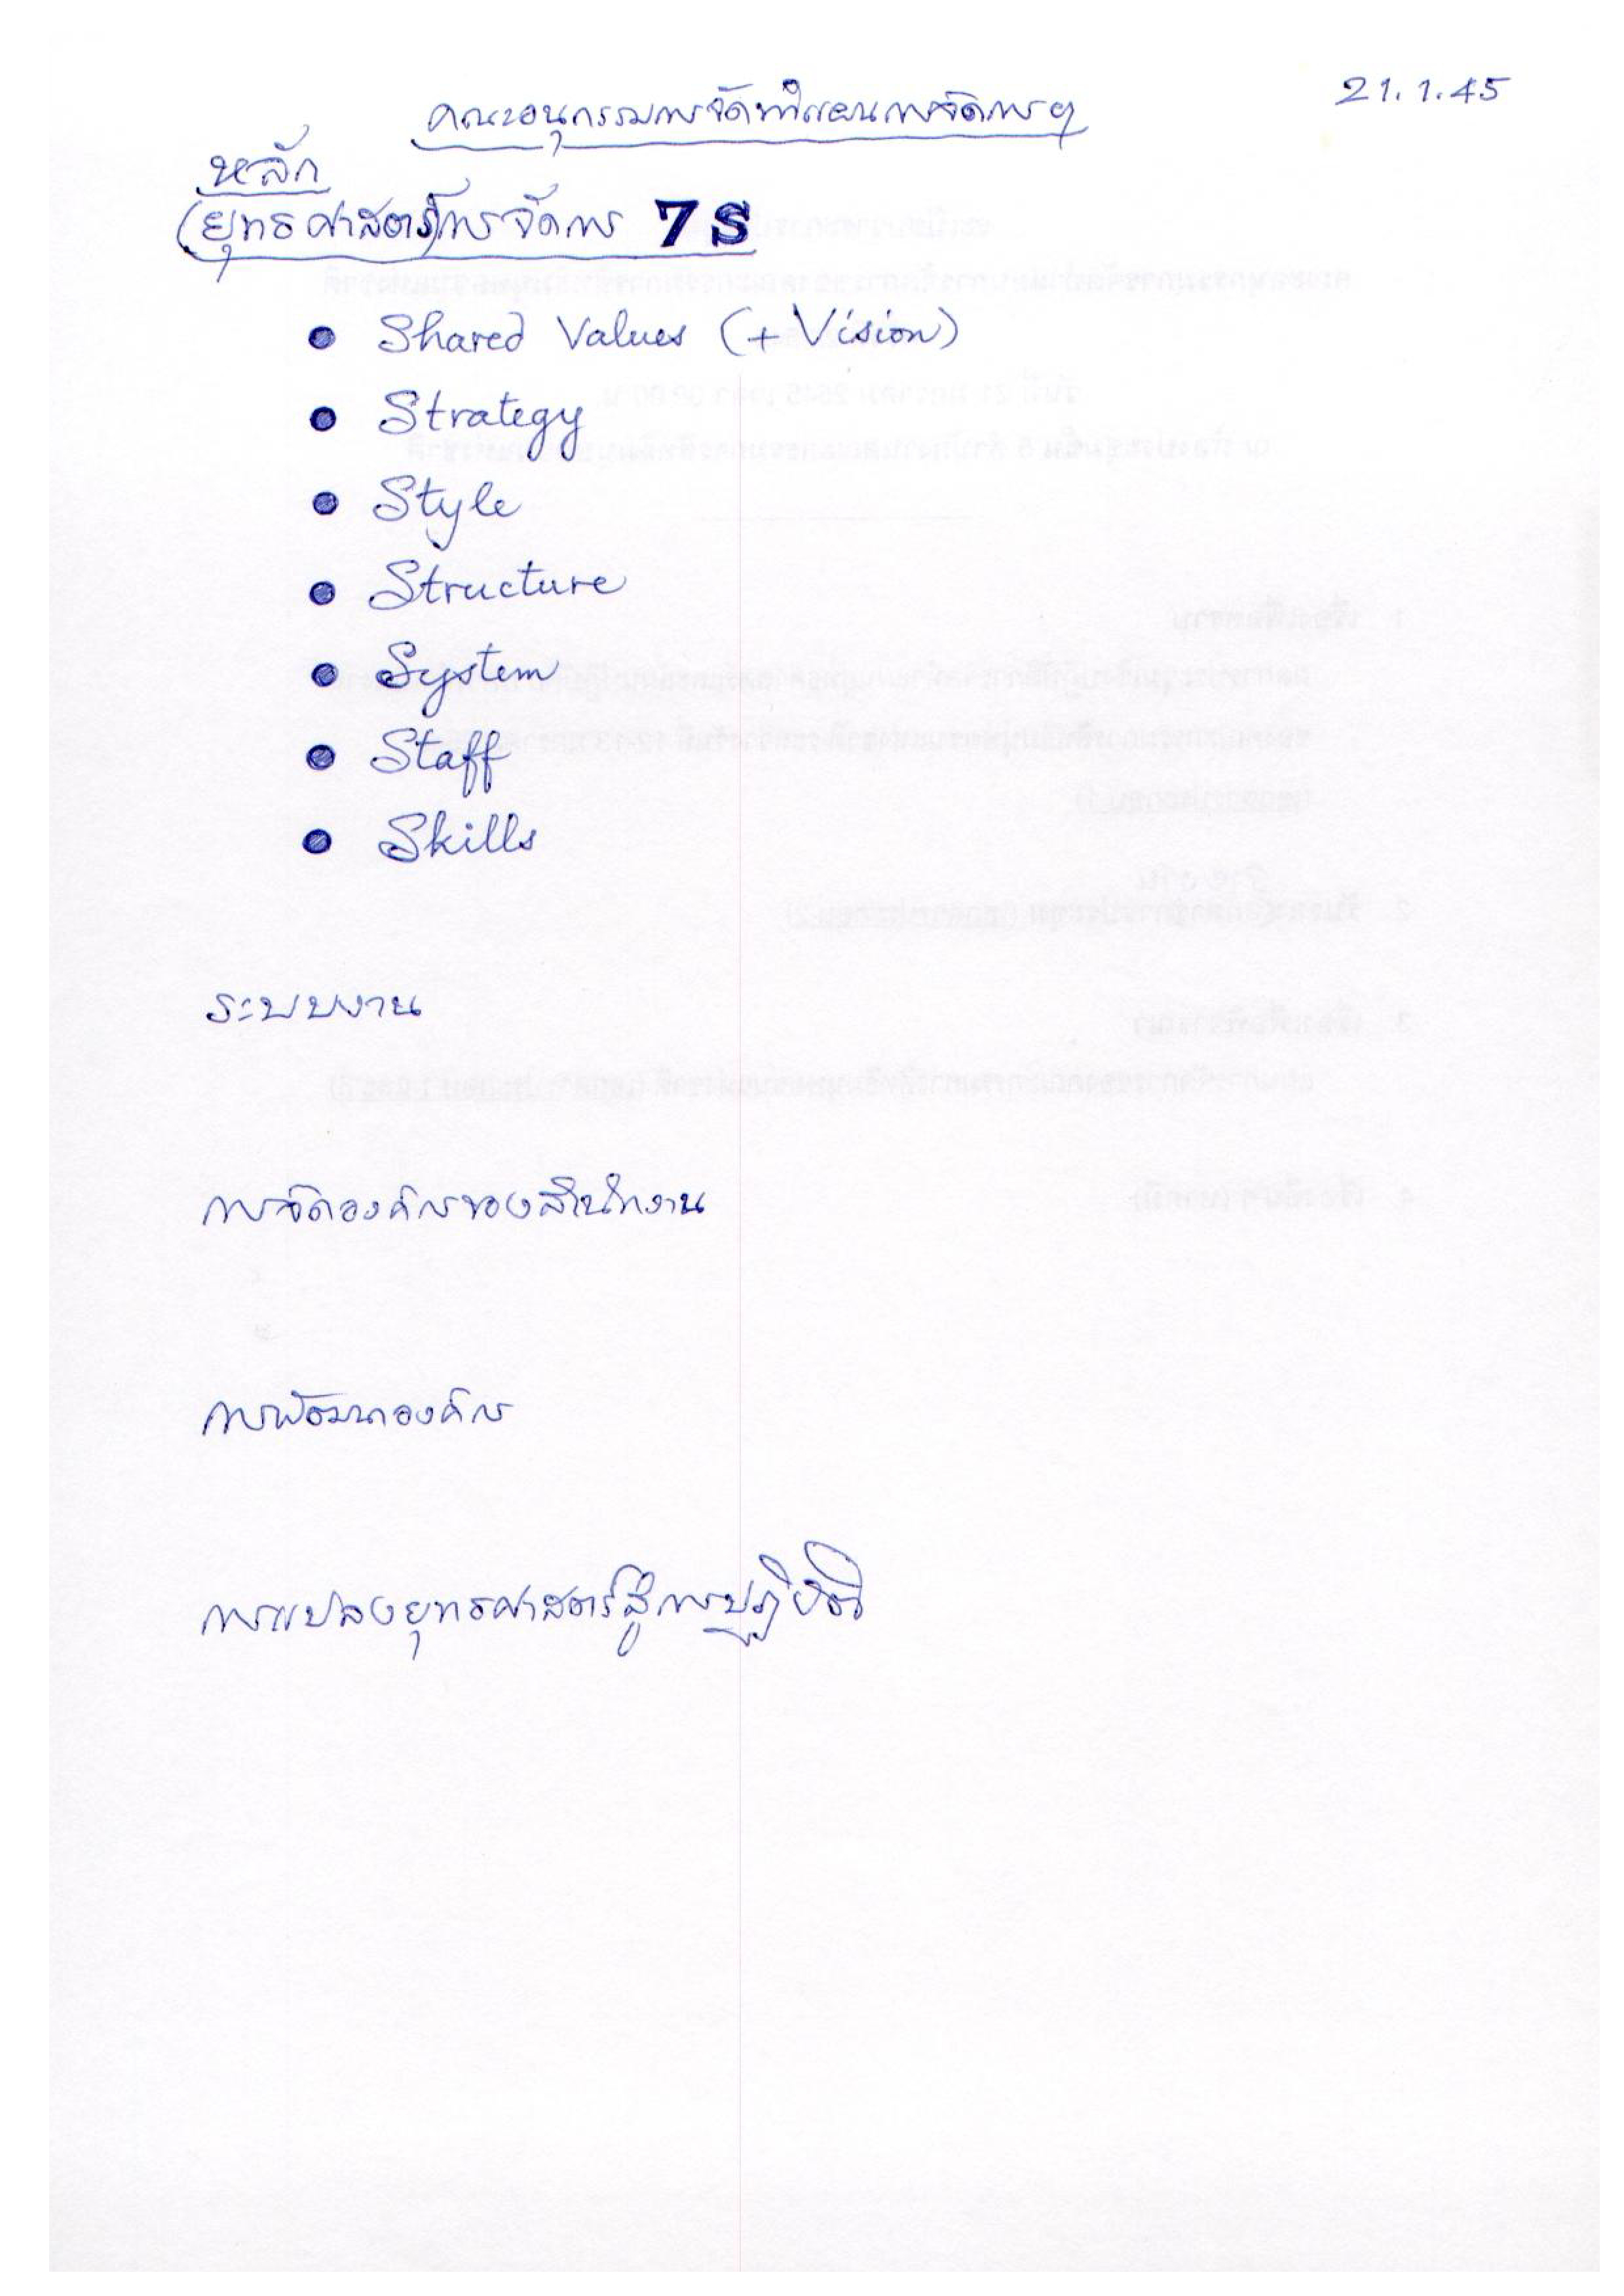 21.1.45
คณะอนุกรรมการจัดทำแผนการจัดการฯ
หลัก
(ยุทธศาสตร์)การจัดการ 7 S
• Shared Values (+ Vision)
• Strategy
• Style
• Structure
• System
• Staff
• Skills
ระบบงาน
การจัดองค์กรของสำนักงาน
การพัฒนาองค์กร
การแปลงยุทธศาสตร์สู่การปฏิบัติ